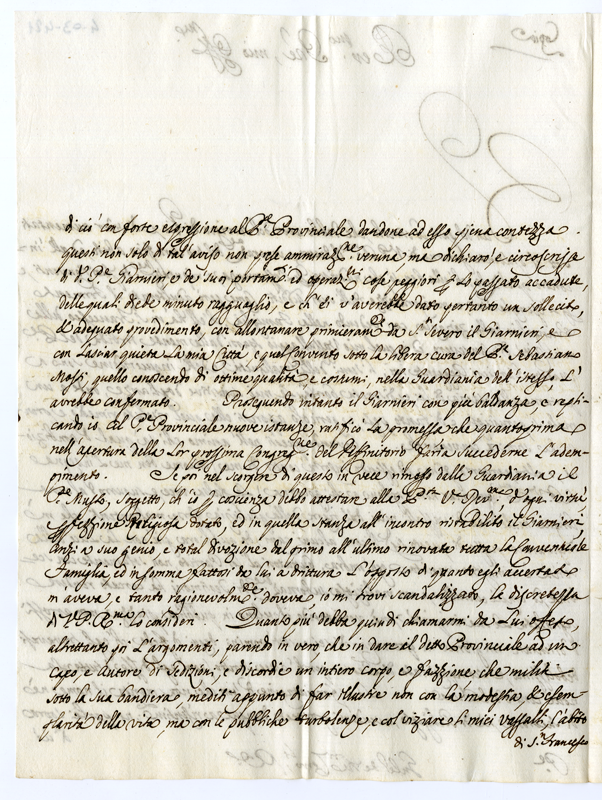 di ciò con forte espressione al P.re Provinciale dandone ad esso piena contezza.
questi non solo di tal aviso non prese ammiraz.ne veruna, ma dichiarò, e circoscrisse
il P.re Giarnieri, e de suoi portam.ti ed operaz.ni cose peggiori per lo passato accadute,
delle quali diede minuto ragguaglio, e ch'ei v'averebbe dato pertanto un sollecito,
ed adeguato provedimento, con allontanare primieram.te da S. Severo il Giarnieri, e
con lasciar quieta la mia Città, e quel Convento sotto la libera cura del P. Sebastiano
quello conoscendo di ottime qualità, e costumi, nella Guardiania dell'istesso, l'
avrebbe confermato. Proseguendo intanto il Giarnieri con più baldanza, e repli-
cando io al P.re Provinciale nuove istanze, ratificò la promessa che quantoprima
nell'apertura della lor prossima Congreg.ne del Deffinitorio faria succederne l'adem-
pimento. Se poi nel scorger di questo in vece rimosso dalla Guardiania il
P.re soggetto, ch'io per coscienza debbo attestare alla P.tà V.a Rev.ma d'ogni virtù,
e perfezzione Religiosa dotato, ed in quella stanza all'incontro ristabilito il Giarnieri,
anzi a suo genio, e total divozione dal primo all'ultimo rinovata tutta la Conventuale
Famiglia, ed in somma fattosi da lui a drittura l'opposto di quanto egli accertato
m'aveva, e tanto ragionevolm.te doveva, io mi trovi scandalizzato, la discretezza
di V. P. R.ma lo consideri. Quanto più debba quindi chiamarmi da lui offeso,
altrettanto poi l'argomenti, parendo in vero, che in dare il detto Provinciale ad un
capo, e autore di sedizioni, e discordie un intiero corpo, e fazzione che milita
sotto la sua bandiera, mediti appunto di far illustre non con la modestia, & esem-
plarità della vita, ma con le pubbliche turbolenze, e col viziare li miei Vassalli, l'abito
di S. Francesco